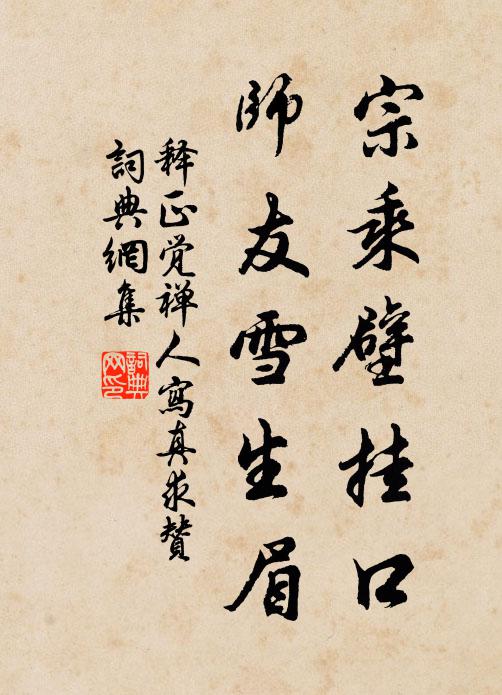 宗乘壁挂口
師友雪生眉
释正觉禅人寫真求贊
詞典網集
詞典
网印